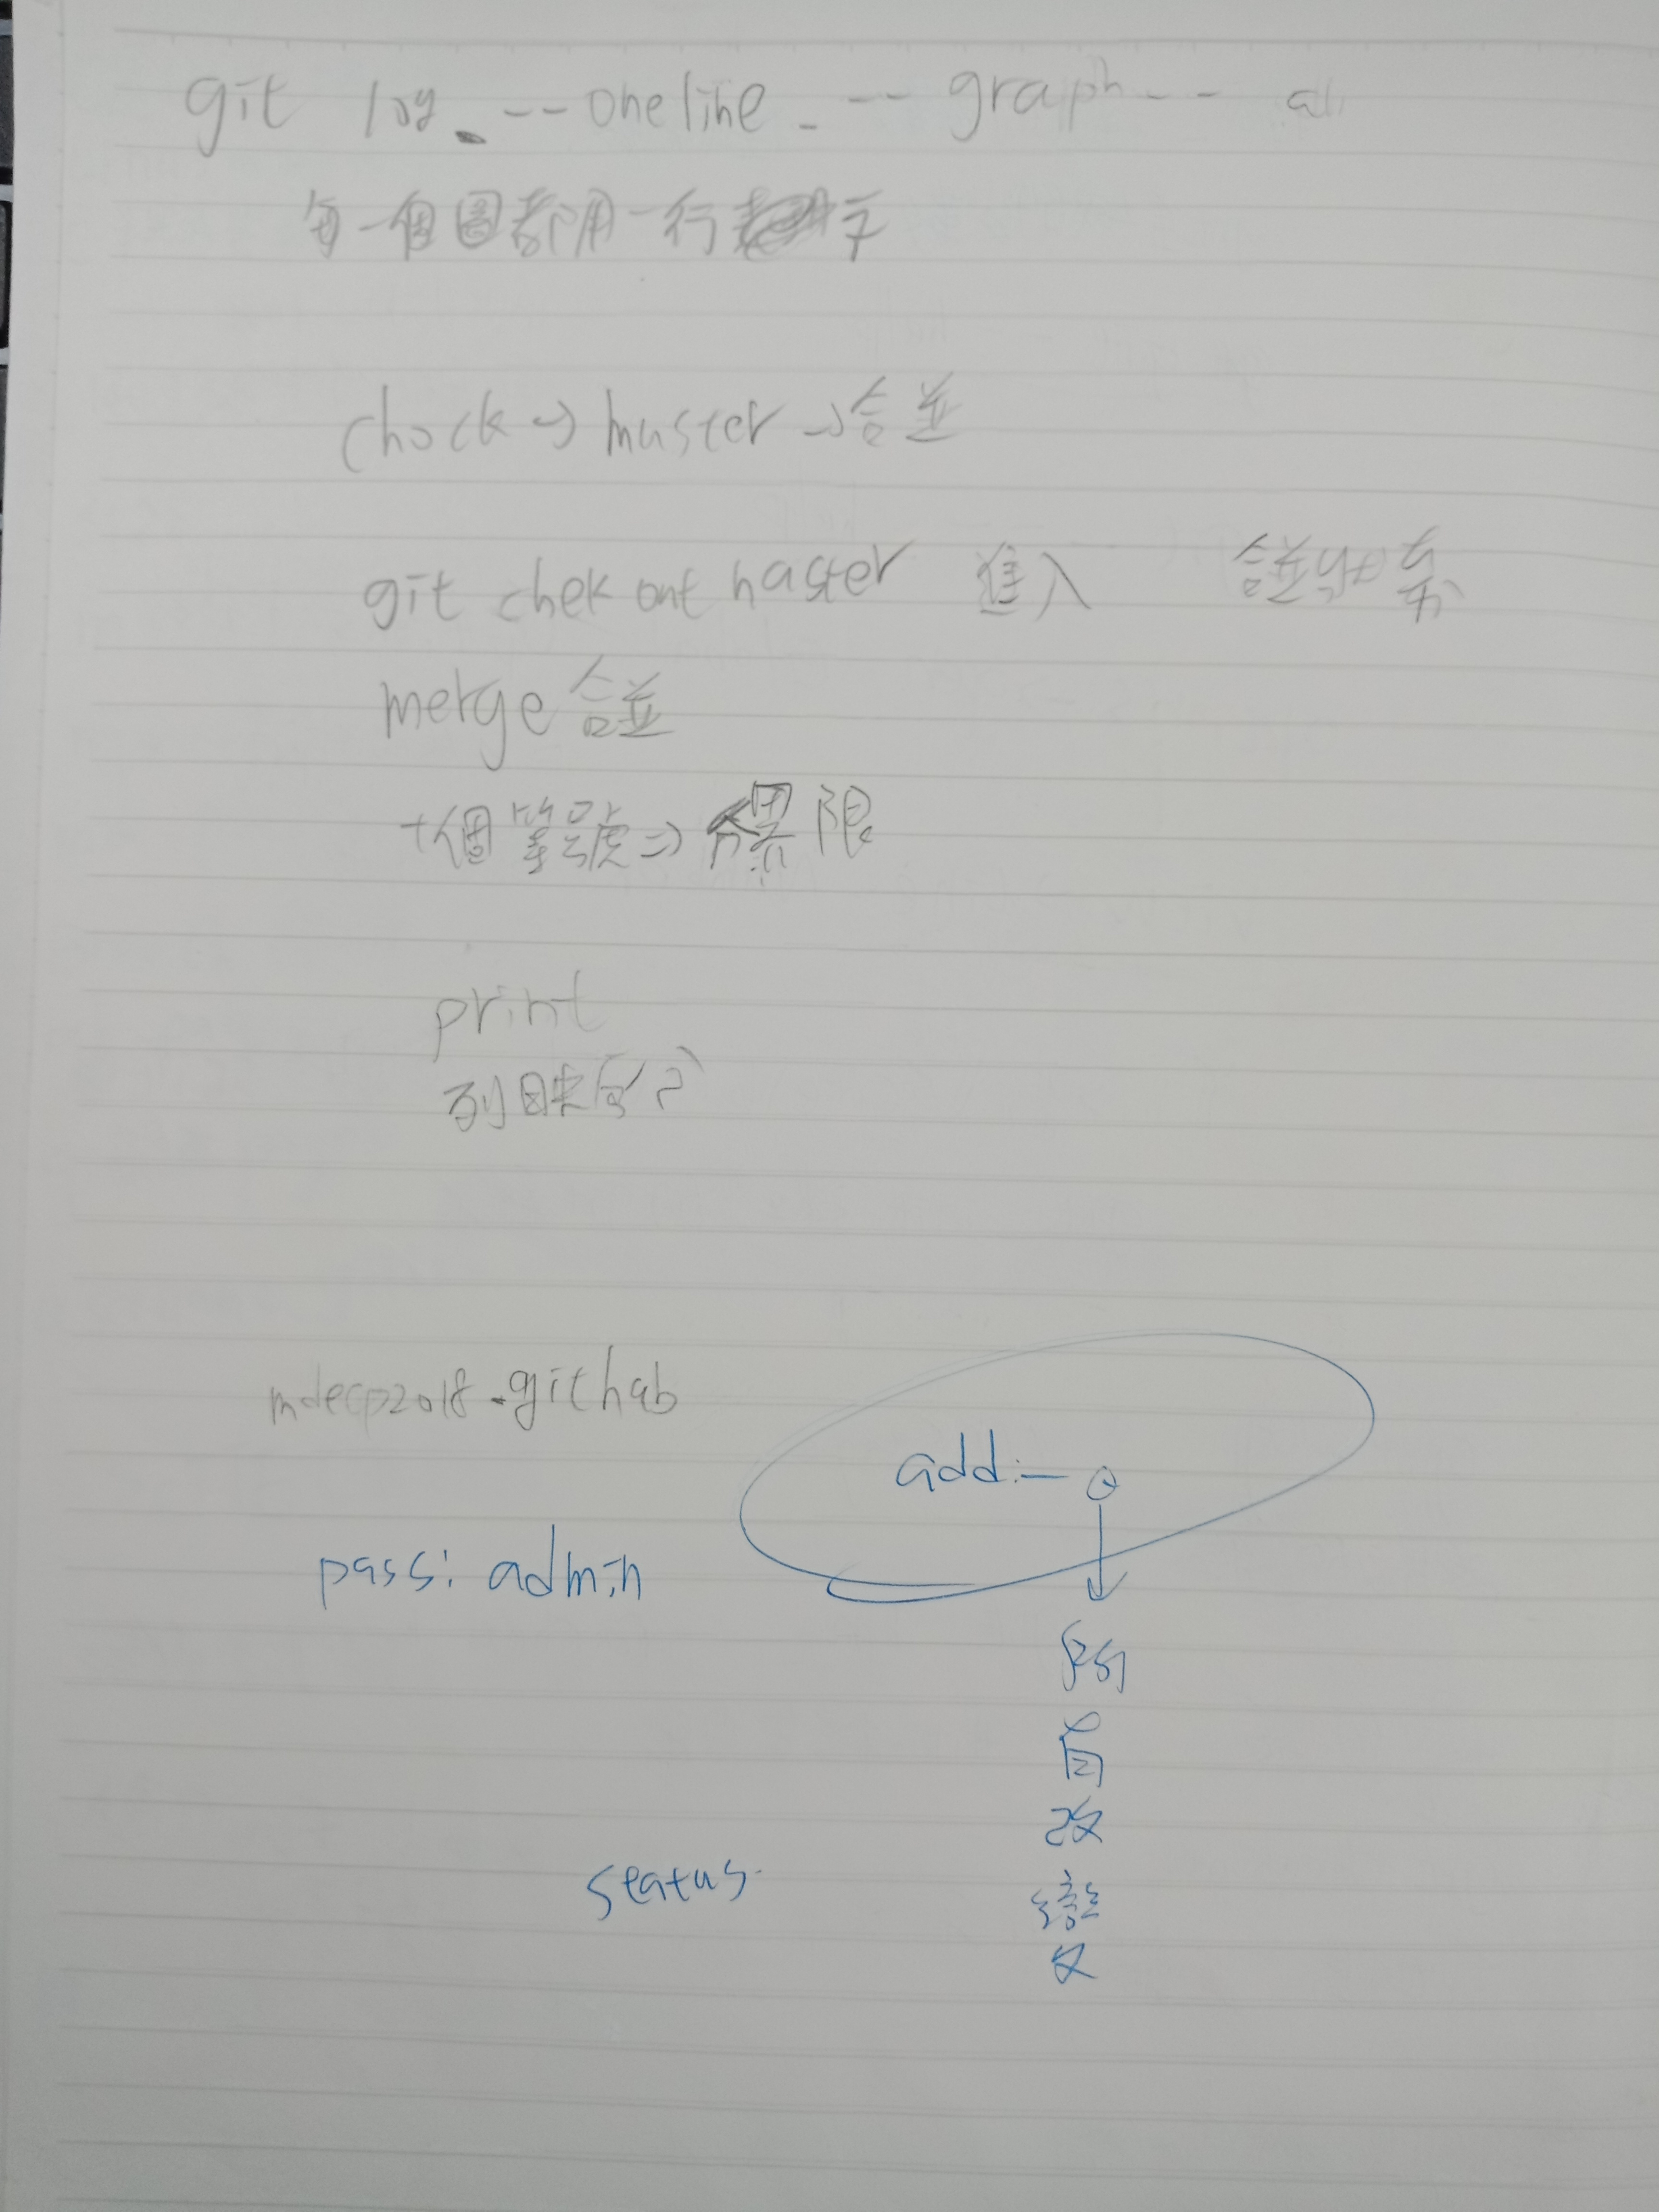 git log --oneline -- graph -- al
每一個圖都用一行表示
chock → master → 合並
git chek out master 進入 合並分支
merge 合並
十個等號 ⇒ 界限
print
列印
mdecp2018.githab
add:— 
pass: admin
所
有
改
變
status.